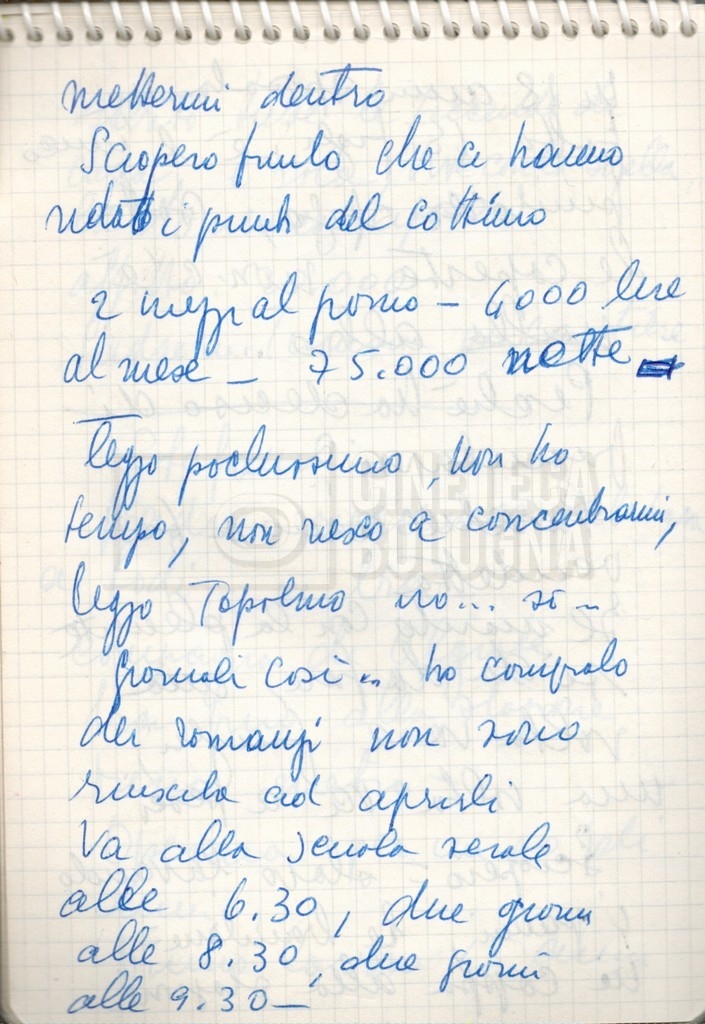 mettermi dentro
Sciopero finito che ci hanno
ridato i punti del cottimo
2 mezzi al giorno – 4000 lire
al mese – 75.000 nette
leggo pochissimo, non ho
tempo, non riesco a concentrarmi,
leggo Topolino no... so...
giornali così... ho comprato
dei romanzi non sono
riuscita ad aprirli
Va alla scuola serale
alle 6.30, due giorni
alle 8.30, due giorni
alle 9.30 –
CINETECA
BOLOGNA